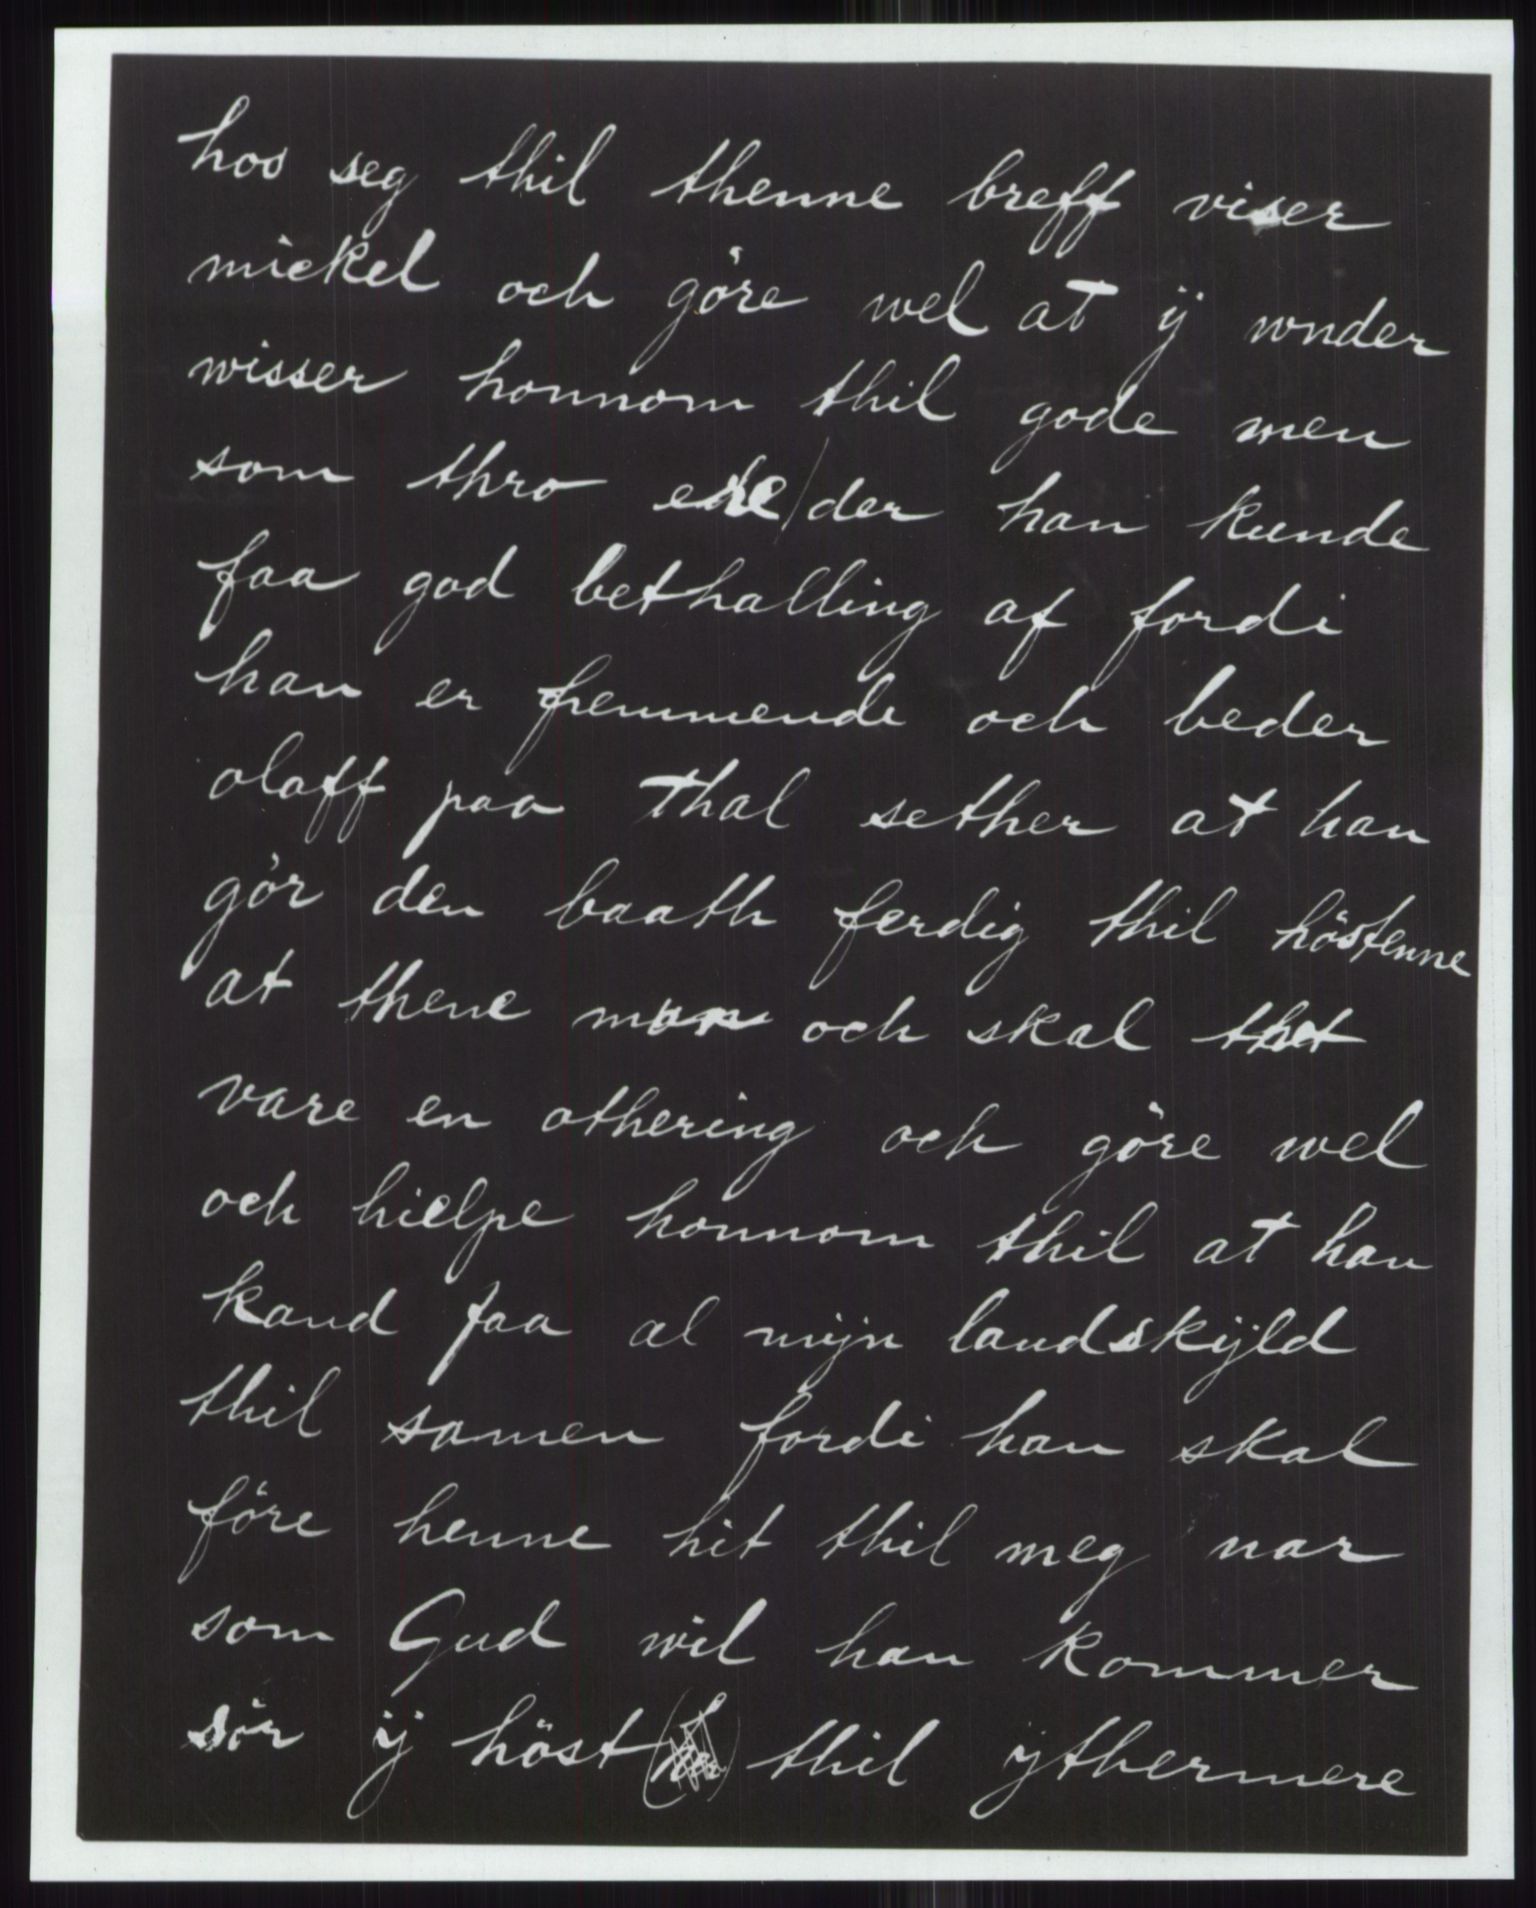 hos seg thil thenne breff viser
mickel och göre wel at ÿ wnder
wisser honnom thil gode men
som thro ere/der han kunde
faa god bethalling af fordi
han er fremmende och beder
olaff paa Thal sether at han
gör den baath ferdig thil höstenne
at thene man och skal thet
vare en othering och göre wel
och hielpe honnom thil at han
kand faa al mijn landskÿld
thil samen fordi han skal
före henne hit thil meg nar
som Gud wil han kommer
sör ÿ höst thil ÿthermere